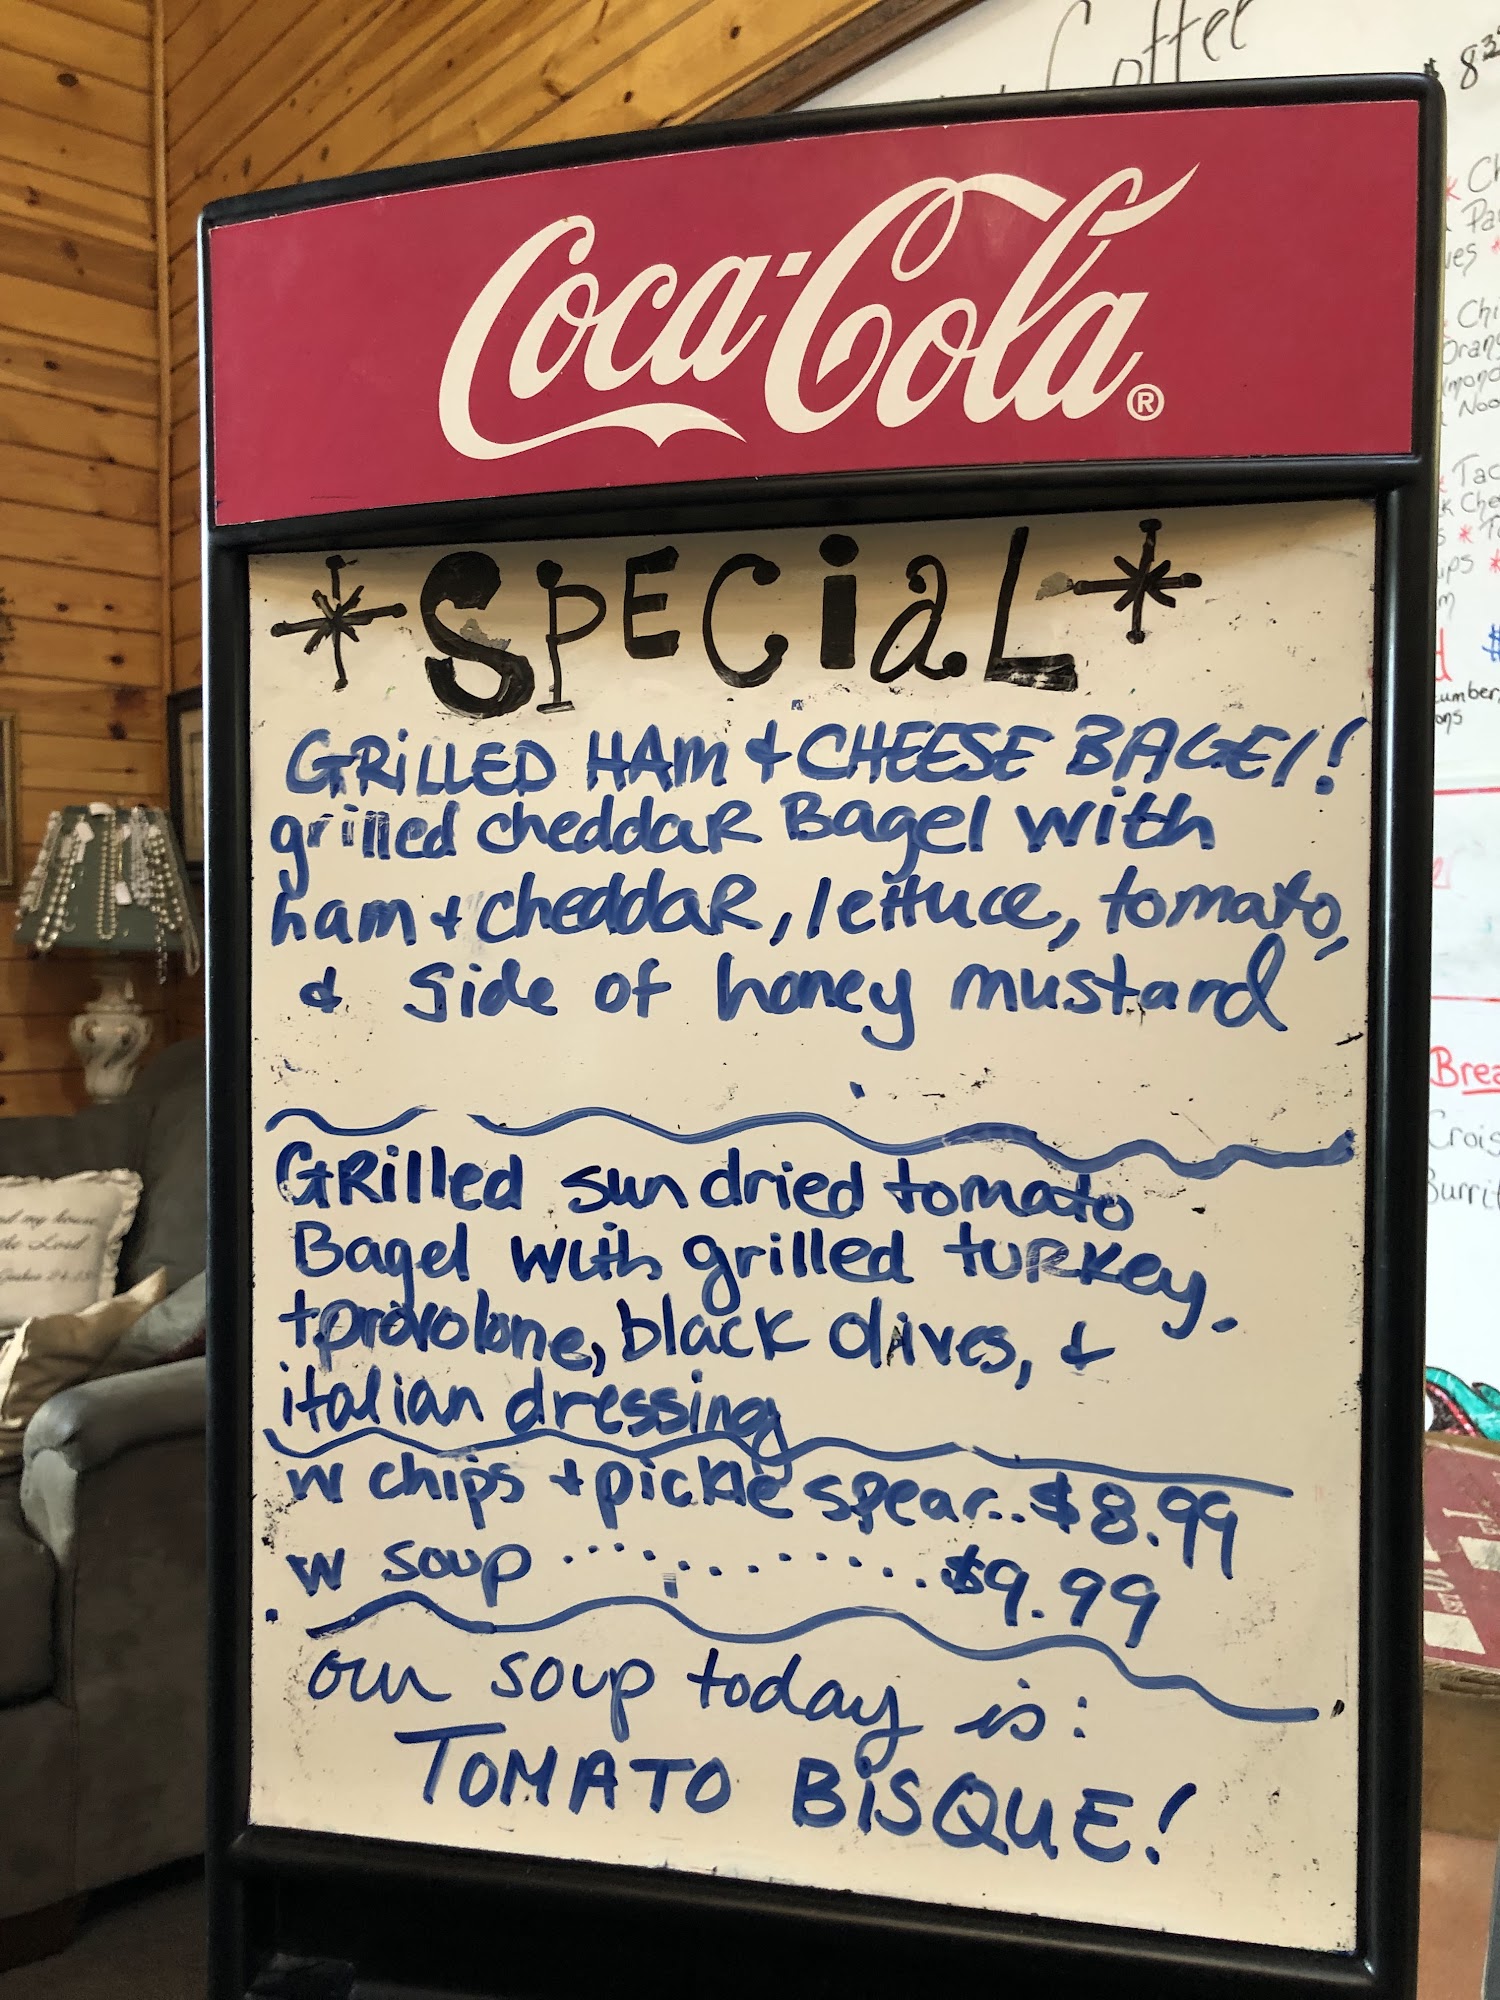 Coffee
$ 8
Coca-Cola®
*SPECiaL*
GRiLLED HAm + CHEESE BAGEl!
grilled cheddaR Bagel with
ham + cheddaR, lettuce, tomato,
& Side of honey mustard
GRilled sun dried tomato
Bagel with grilled tuRKey.
+ provolone, black olives, &
italian dressing
w chips + pickle spear..$8.99
w soup ............... $9.99
our soup today is:
TOMATO BiSQUE!
my house
the Lord